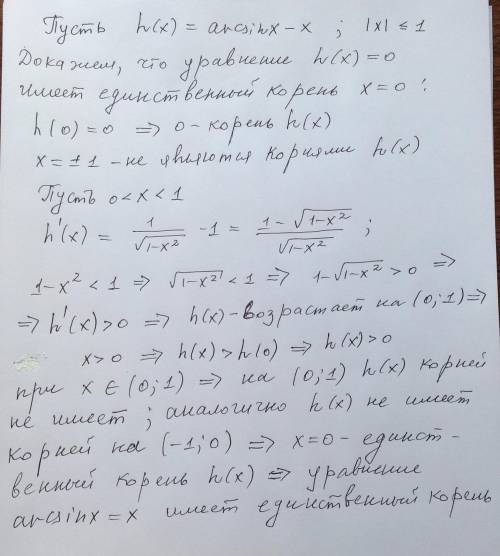 Пусть h(x) = arcsinx - x ; |x| ≤ 1
Докажем, что уравнение h(x) = 0
имеет единственный корень x = 0 :
h(0) = 0 ⇒ 0 - корень h(x)
x = ±1 - не являются корнями h(x)
Пусть 0 < x < 1
h'(x) = 1/√(1-x²) - 1 = (1 - √(1-x²))/√(1-x²) ;
1-x² < 1 ⇒ √(1-x²) < 1 ⇒ 1-√(1-x²) > 0 ⇒
⇒ h'(x) > 0 ⇒ h(x) - возрастает на (0;1) ⇒
x > 0 ⇒ h(x) > h(0) ⇒ h(x) > 0
при x ∈ (0;1) ⇒ на (0;1) h(x) корней
не имеет ; аналогично h(x) не имеет
корней на (-1;0) ⇒ x=0 - единст-
венный корень h(x) ⇒ уравнение
arcsinx = x имеет единственный корень